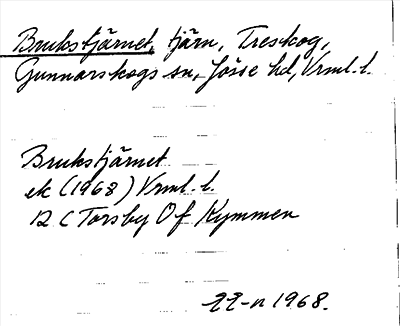 Brukstjärnet, tjärn, Treskog,
Gunnarskogs sn, Jösse hd, Vrml. l.
Brukstjärnet
ek (1968) Vrml. l.
12 C Torsby Of Kymmen
1968.